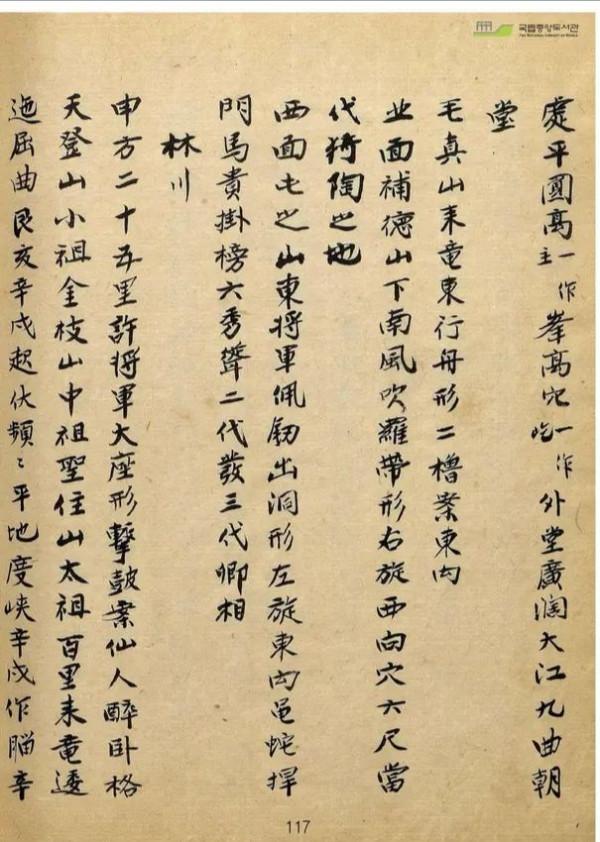 국립중앙도서관
THE NATIONAL LIBRARY OF KOREA
處平圓高一作主峯高穴一作吃外堂廣濶大江九曲朝
堂
毛真山来竜東行舟形二櫓案東内
北面補德山下南風吹羅帶形右旋西向穴六尺當
代猗陶之地
西面屯之山東将軍佩釼出洞形左旋東内黾蛇捍
門馬貴掛榜六秀聳二代發三代卿相
林川
申方二十五里許将軍大座形擊鼓案仙人醉卧格
天登山小祖金枝山中祖聖住山太祖百里来竜逶
迤屈曲艮亥辛戌起伏頻〻平地度峽辛戌作腦辛
117